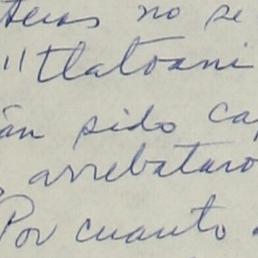 teras no se
"tlatoani
án sido ca
arrebataro
Por cuanto